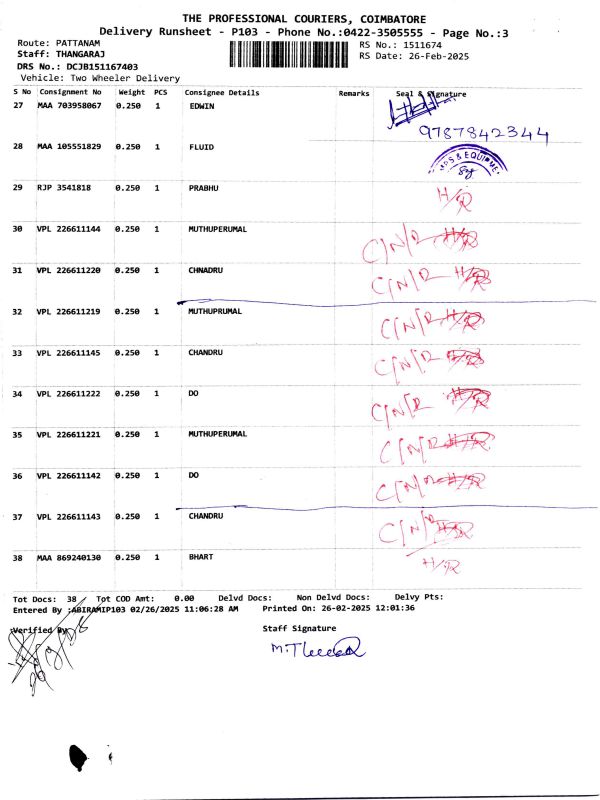 THE PROFESSIONAL COURIERS, COIMBATORE
Delivery Runsheet - P103 - Phone No.:0422-3505555 - Page No.:3
Route: PATTANAM RS No.: 1511674
Staff: THANGARAJ RS Date: 26-Feb-2025
DRS No.: DCJB151167403
Vehicle: Two Wheeler Delivery
S No Consignment No Weight PCS Consignee Details Remarks Seal & Signature
27 MAA 703958067 0.250 1 EDWIN
9787842344
28 MAA 105551829 0.250 1 FLUID
PS & EQUIPME
29 RJP 3541818 0.250 1 PRABHU H/R
30 VPL 226611144 0.250 1 MUTHUPERUMAL C/N/R H/R
31 VPL 226611220 0.250 1 CHNADRU C/N/R H/R
32 VPL 226611219 0.250 1 MUTHUPRUMAL C/N/R H/R
33 VPL 226611145 0.250 1 CHANDRU C/N/R H/R
34 VPL 226611222 0.250 1 DO C/N/R H/R
35 VPL 226611221 0.250 1 MUTHUPERUMAL C/N/R H/R
36 VPL 226611142 0.250 1 DO C/N/R H/R
37 VPL 226611143 0.250 1 CHANDRU C/N/R
38 MAA 869240130 0.250 1 BHART H/R
Tot Docs: 38 Tot COD Amt: 0.00 Delvd Docs: Non Delvd Docs: Delvy Pts:
Entered By :ABIRAMIP103 02/26/2025 11:06:28 AM Printed On: 26-02-2025 12:01:36
Verified By Staff Signature